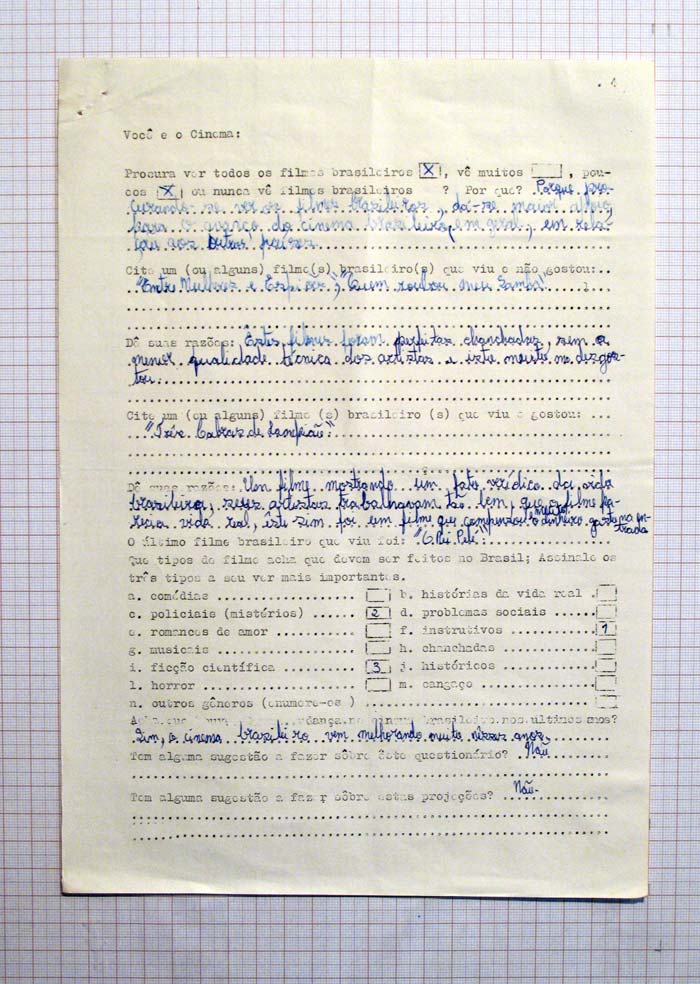 . 4
Você e o Cinema:
Procura ver todos os filmes brasileiros [X], vê muitos [ ], pou-
cos [X] ou nunca vê filmes brasileiros ? Por que? Porque pro-
curando-se ver os filmes brasileiros, dá-se maior apoio
para o avanço do cinema brasileiro, em geral, em rela-
ção aos outros países
Cite um (ou alguns) filme(s) brasileiro(s) que viu e não gostou:..
"Entre Mulheres e Espiões", "Quem roubou meu Samba"
Dê suas razões: Estes filmes foram perfeitas chanchadas, sem a
menor qualidade técnica dos artistas e isto muito me desgos-
tou.
Cite um (ou alguns) filme (s) brasileiro (s) que viu e gostou: ...
"Três Cabras de Lampião"
Dê suas razões: Um filme mostrando um fato verídico da vida
brasileira, seus artistas trabalhavam tão bem, que o filme pa-
recia vida real, êste sim foi um filme que compensou muito o dinheiro gasto na en-
trada
O último filme brasileiro que viu foi: "O Rei Pelé"
Que tipos de filme acha que devem ser feitos no Brasil; Assinale os
três tipos a seu ver mais importantes.
a. comédias .................... [ ] b. histórias da vida real . [ ]
c. policiais (mistérios) ...... [2] d. problemas sociais ..... [ ]
e. romances de amor ........... [ ] f. instrutivos ............ [1]
g. musicais ................... [ ] h. chanchadas ............. [ ]
i. ficção científica .......... [3] j. históricos ............. [ ]
l. horror ..................... [ ] m. cangaço ................ [ ]
n. outros gêneros (enumere-os ) ................................ [ ]
Acha que houve mudança no cinema brasileiro nos últimos anos?
Sim, o cinema brasileiro vem melhorando muito nesses anos.
Tem alguma sugestão a fazer sôbre êste questionário? Não
Tem alguma sugestão a fazer sôbre estas projeções? Não.